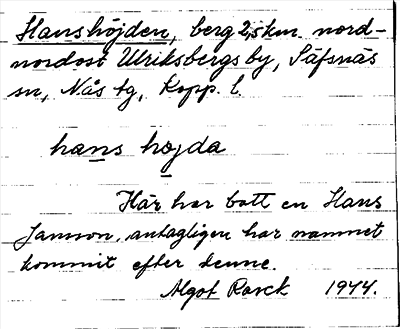 Hanshöjden, berg 2,5 km nord-
nordost Ulriksbergs by, Säfsnäs
sn, Nås tg, Kopp. l.
hans höjda
Här har bott en Hans
Jansson, antagligen har namnet
kommit efter denne.
Algot 1944.